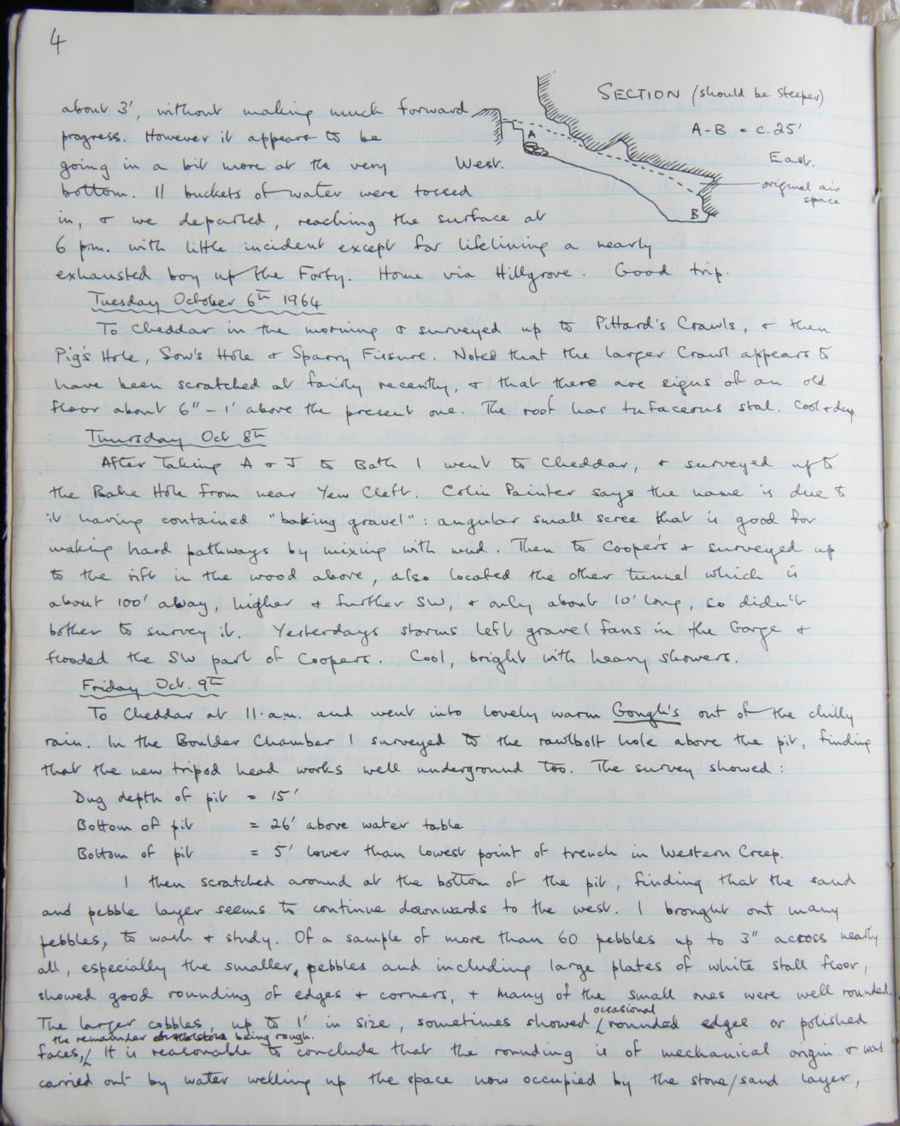 4
SECTION (should be steeper)
A-B = c. 25'
West.
East.
original air
space
A
B
about 3', without making much forward
progress. However it appears to be
going in a bit more at the very
bottom. 11 buckets of water were tossed
in, & we departed, reaching the surface at
6 pm. with little incident except for lifelining a nearly
exhausted boy up the Forty. Home via Hillgrove. Good trip.
Tuesday October 6th 1964
To Cheddar in the morning & surveyed up to Pittard's Crawls, & then
Pig's Hole, Sow's Hole & Sparry Fissure. Noted that the larger Crawl appears to
have been scratched at fairly recently, & that there are signs of an old
floor about 6" - 1' above the present one. The roof has tufaceous stal. Cool & dry
Thursday Oct 8th
After taking A & J to Bath I went to Cheddar, & surveyed up to
the Bake Hole from near Yew Cleft. Colin Painter says the name is due to
it having contained "baking gravel": angular small scree that is good for
making hard pathways by mixing with mud. Then to Cooper's & surveyed up
to the rift in the wood above, also located the other tunnel which is
about 100' away, higher & further SW, & only about 10' long, so didn't
bother to survey it. Yesterdays storms left gravel fans in the Gorge &
flooded the SW part of Coopers. Cool, bright with heavy showers.
Friday Oct. 9th
To Cheddar at 11.a.m. and went into lovely warm Gough's out of the chilly
rain. In the Boulder Chamber I surveyed to the rawlbolt hole above the pit, finding
that the new tripod head works well underground too. The survey showed:
Dug depth of pit = 15'
Bottom of pit = 26' above water table
Bottom of pit = 5' lower than lowest point of trench in Western Creep.
I then scratched around at the bottom of the pit, finding that the sand
and pebble layer seems to continue downwards to the west. I brought out many
pebbles, to wash & study. Of a sample of more than 60 pebbles up to 3" across nearly
all, especially the smaller pebbles and including large plates of white stall floor,
showed good rounding of edges & corners, & many of the small ones were well rounded
The larger cobbles, up to 1' in size, sometimes showed occasional rounded edges or polished
faces, the remainder being rough. It is reasonable to conclude that the rounding is of mechanical origin & was
carried out by water welling up the space now occupied by the stone/sand layer,